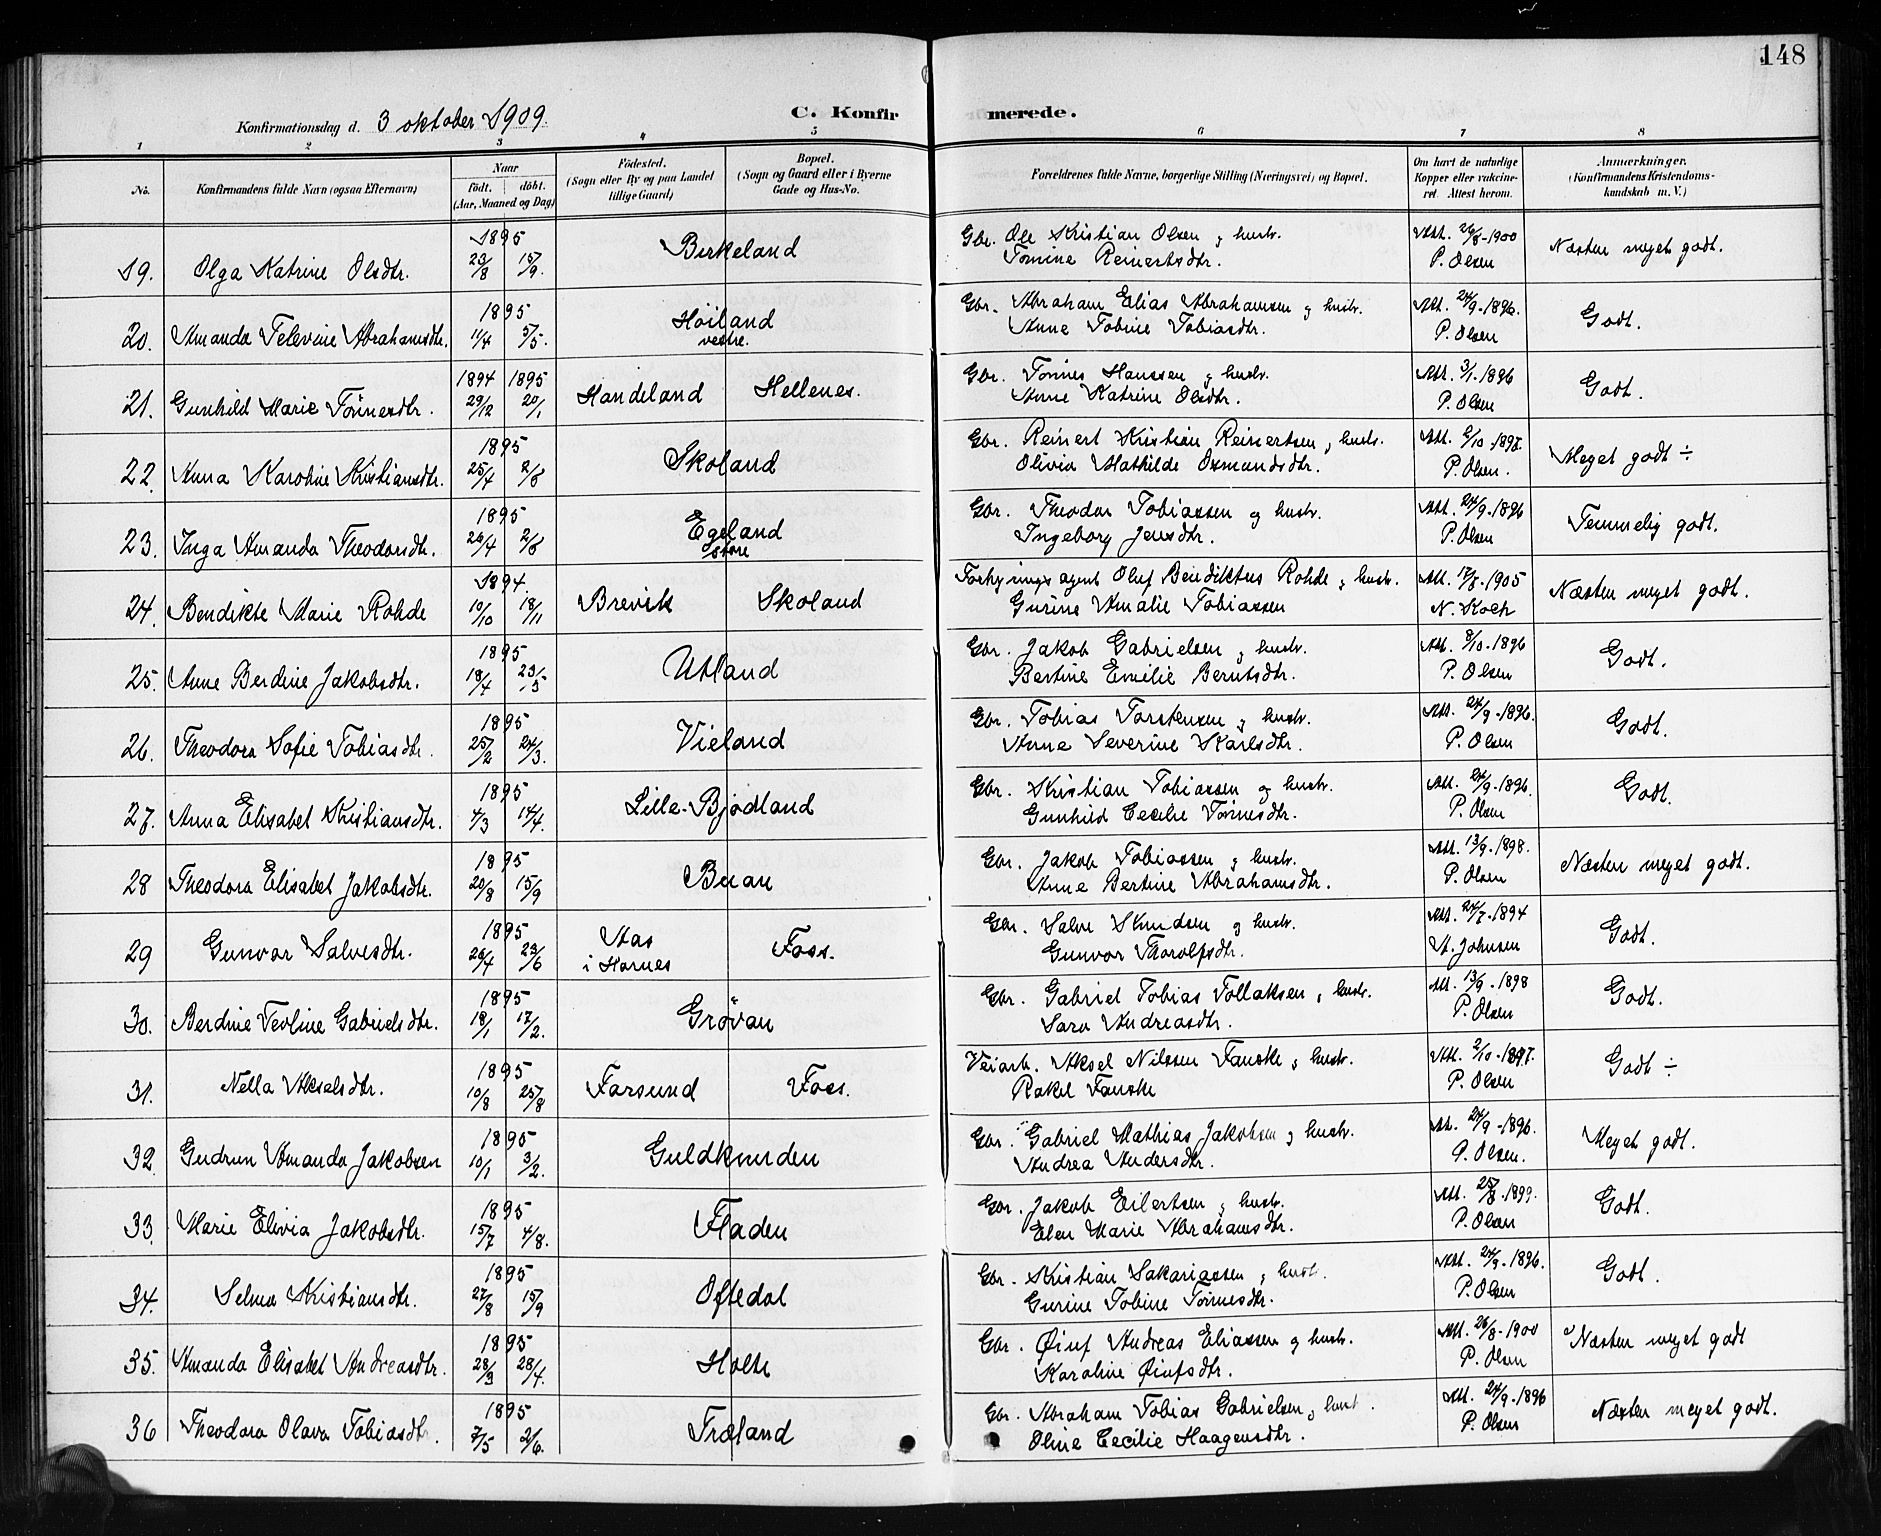 148
Konfirmationsdag d. 3 oktober 1909.
C. Konfirmerede.
1 2 3 4 5 6 7 8
No. Konfirmandens fulde Navn (ogsaa Efternavn) Naar født. døbt. (Aar, Maaned og Dag) Fødested. (Sogn eller By og paa Landet tillige Gaard) Bopæl. (Sogn og Gaard eller i Byerne Gade og Hus-No. Forældrenes fulde Navne, borgerlige Stilling (Næringsvei) og Bopæl. Om havt de naturlige Kopper eller vaccineret. Attest herom. Anmærkninger. (Konfirmandens Kristendomskundskab m. V.)
19. Olga Katrine Olsdtr. 1895 23/8 15/9. Birkeland Gbr. Ole Kristian Olsen & hustr. Tomine Reinertsdtr. Att. 26/8-1900 P. Olsen Næsten meget godt.
20. Amanda Televine Abrahamsdtr. 1895 11/4 5/5. Høiland vestre. Gbr. Abraham Elias Abrahamsen og hustr. Anne Tobine Tobiasdtr. Att. 24/9-1896. P. Olsen Godt.
21. Gunhild Marie Tønnesdtr. 1894 29/12 1895 20/1 Handeland Hellenes. Gbr. Tønnes Hanssen & hustr. Anne Katrine Olsdtr. Att. 3/1-1896 P. Olsen Godt.
22. Anna Karoline Kristiansdtr. 1895 25/4 2/6 Skoland Gbr. Reinert Kristian Reinertsen & hustr. Olivia Mathilde Osmundsdtr. Att. P. Olsen. Meget godt ÷
23. Inga Amanda Theodorsdtr. 1895 26/4 2/6 Egeland store Gbr. Theodor Tobiassen og hustr. Ingeborg Jensdtr. Att. 24/9-1896 P. Olsen Temmelig godt.
24. Bendikte Marie Rohde 1894. 10/10 18/11 Brevik Skoland Forhyringsagent Oluf Bendiktus Rohde & hustr. Gurine Amalie Tobiassen Att. 17/8-1905 N. Koch Næsten meget godt.
25. Anne Berdine Jakobsdtr. 1895 18/4 23/5 Utland Gbr. Jakob Gabrielsen & hustr. Bertine Emilie Berntsdtr. Att. 8/10-1896 P. Olsen Godt.
26. Theodora Sofie Tobiasdtr. 1895 25/2 24/3. Vieland Gbr. Tobias Torstensen & hustr. Anne Severine Karlsdtr. Att. 24/9-1896. P. Olsen Godt.
27. Anna Elisabet Kristiansdtr. 1895 4/3 14/4. Lille-Bjødland Gbr. Kristian Tobiassen og hustr. Gunhild Cecilie Tønnesdtr. Att. 24/9-1896. P. Olsen Godt.
28 Theodora Elisabet Jakobsdtr. 1895 20/8 15/9 Buan Gbr. Jakob Tobiassen & hustr. Anne Bertine Abrahamsdtr. Att. 13/9-1898. P. Olsen Næsten meget godt.
29 Gunvor Salvesdtr. 1895 26/4 23/6 Aas i Hornes Foss. Gbr. Salve Knudsen og hustr. Gunvor Thorolfsdtr. Att. 24/7-1894 A. Johnsen Godt.
30. Berdine Teoline Gabrielsdtr. 1895 18/1 17/2. Grøvan Gbr. Gabriel Tobias Tollaksen & hustr. Sara Andreasdtr. Att. 13/9-1898 P. Olsen Godt.
31. Nella Akselsdtr. 1895 10/8 25/8 Farsund Foss. Veiarb. Aksel Nilssen Fauske & hustr. Rakel Fauske Att. 2/10-1897. P. Olsen Godt ÷
32. Gudrun Amanda Jakobsen 1895 10/1 3/2. Guldknuden Gbr. Gabriel Mathias Jakobsen & hustr. Andrea Andersdtr. Att. 24/9-1896. P. Olsen. Meget godt.
33. Marie Elivia Jakobsdtr. 1895 15/7 4/8. Fladen Gbr. Jakob Eilertsen & hustr. Elen Marie Abrahamsdtr. Att. 25/8-1899. P. Olsen Godt.
34. Selma Kristiansdtr. 1895 27/8 15/9 Oftedal Gbr. Kristian Sakariassen & hustr. Gurine Tobine Tønnesdtr. Att. 24/9-1896. P. Olsen Godt.
35. Amanda Elisabet Andreasdtr. 1895 28/3 28/4. Holte Gbr. Øiuf Andreas Eliassen og hustr. Karoline Øiufsdtr. Att. 26/8-1900 P. Olsen Næsten meget godt
36 Theodora Olava Tobiasdtr. 1895 7/5 2/6. Træland Gbr. Abraham Tobias Gabrielsen & hustr. Oline Cecilie Haagensdtr. Att. 24/9-1896 P. Olsen Næsten meget godt.